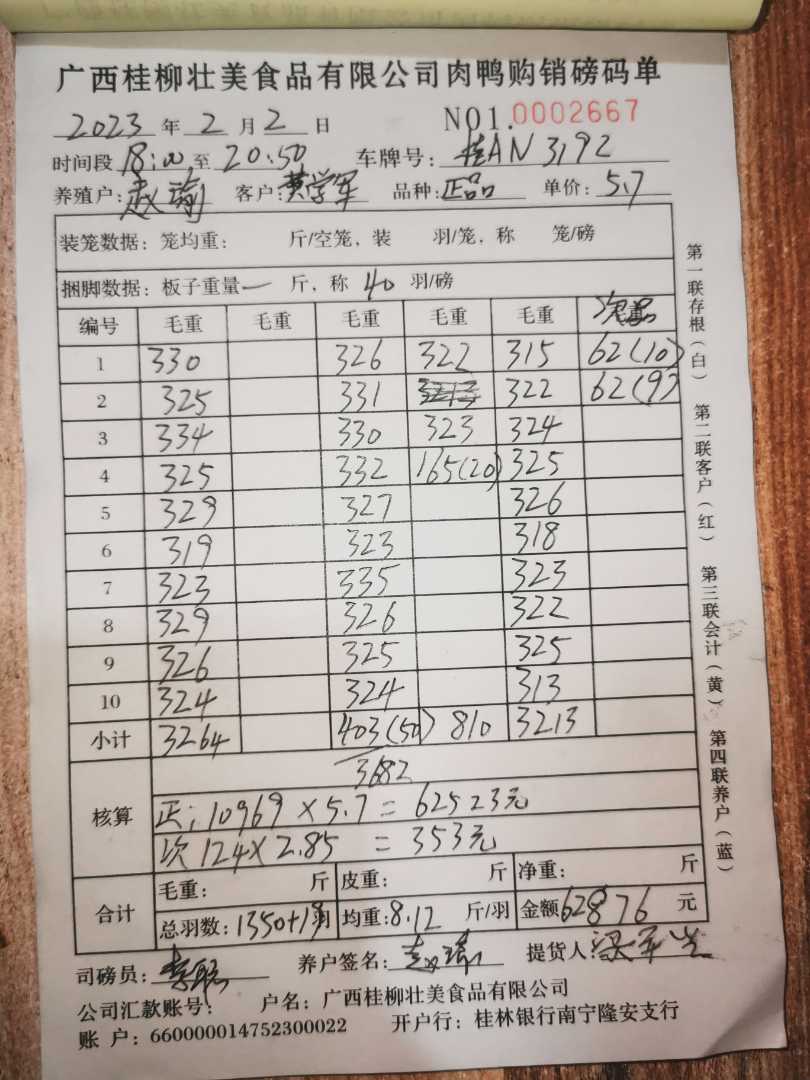 广西桂柳壮美食品有限公司肉鸭购销磅码单
2023 年 2 月 2 日 NO1.0002667
时间段 18:00 至 20:50 车牌号: 桂AN3192
养殖户: 赵瑜 客户: 黄学军 品种: 正品 单价: 5.7
装笼数据: 笼均重: 斤/空笼, 装 羽/笼, 称 笼/磅
捆脚数据: 板子重量 一 斤, 称 40 羽/磅
编号 毛重 毛重 毛重 毛重 毛重 次品
1 330 326 322 315 62(10)
2 325 331 322 62(9)
3 334 330 323 324
4 325 332 165(20) 325
5 329 327 326
6 319 323 318
7 323 335 323
8 329 326 322
9 326 325 325
10 324 324 313
小计 3264 403(50) 810 3213
3682
核算 正: 10969×5.7=62523元
次 124×2.85 =353元
合计 毛重: 斤 皮重: 斤 净重: 斤
总羽数: 1350+19羽 均重: 8.12 斤/羽 金额 62876 元
司磅员: 养户签名: 赵瑜 提货人:
公司汇款账号: 户名: 广西桂柳壮美食品有限公司
账 户: 660000014752300022 开户行: 桂林银行南宁隆安支行
第一联存根(白) 第二联客户(红) 第三联会计(黄) 第四联养户(蓝)